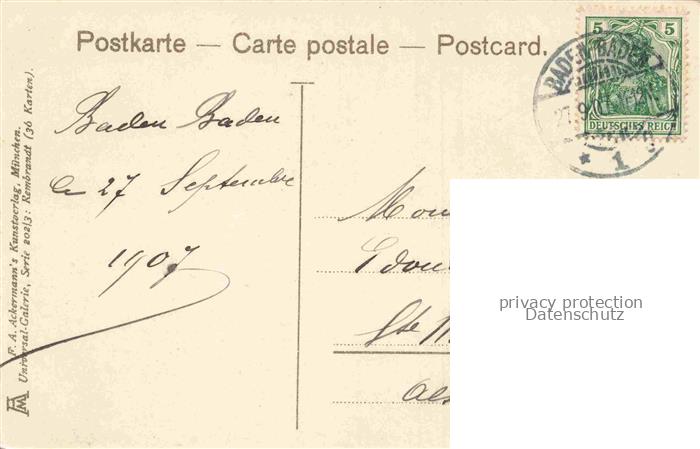 Postkarte — Carte postale — Postcard.
5 5
DEUTSCHES REICH
BADEN-BADEN
27.9.07
* 1
Baden Baden
le 27 Septembre
1907
Mon
Edou
Ste M
Als
F. A. Ackermann's Kunstverlag, München.
Universal-Galerie, Serie 202/3: Rembrandt (36 Karten).
privacy protection
Datenschutz